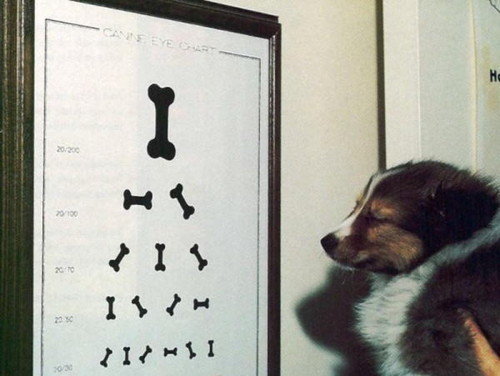 CANINE EYE CHART
20/200
20/100
20/70
20/50
20/30